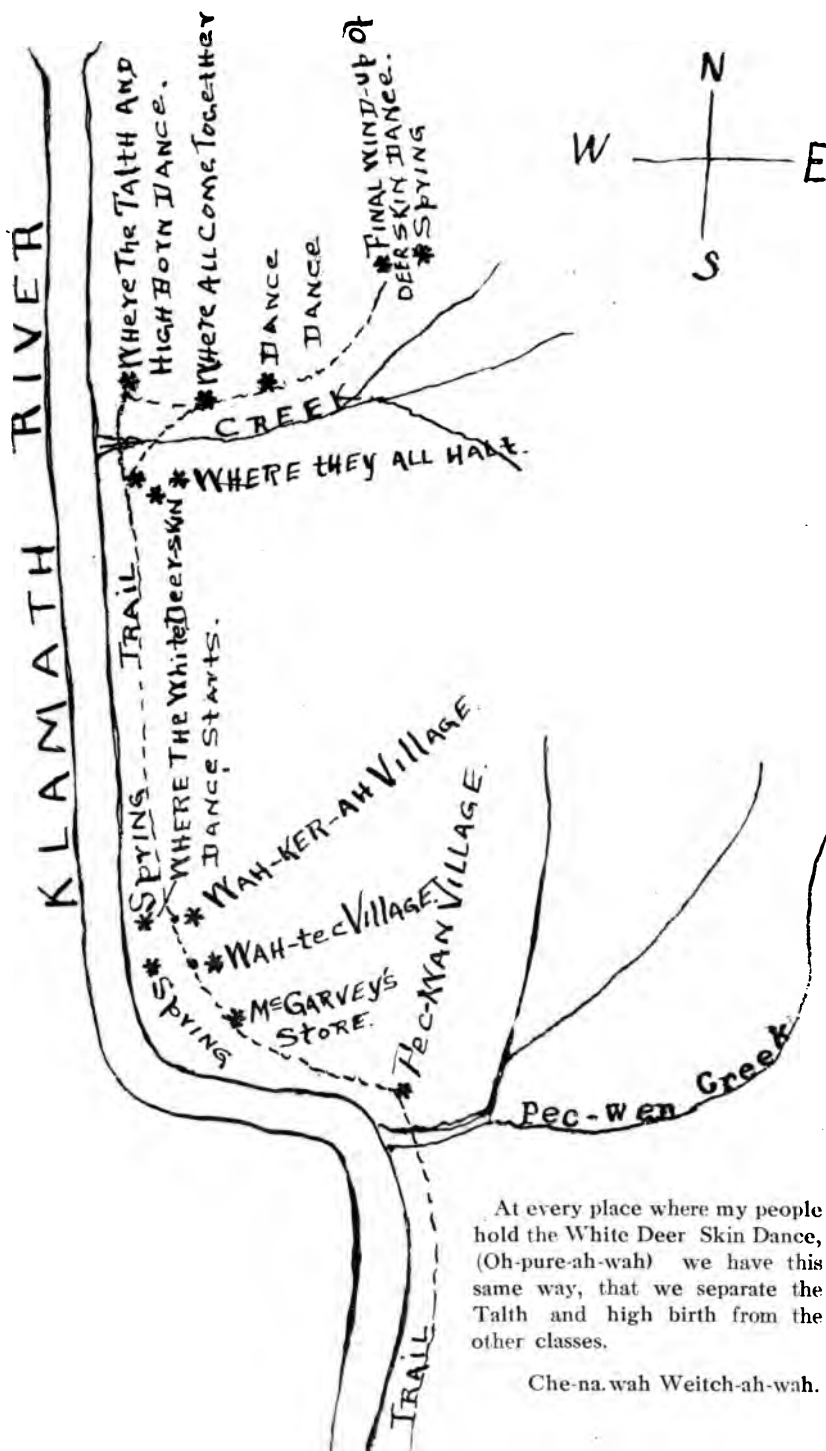 KLAMATH RIVER
WHERE THE TALTH AND
HIGH BORN DANCE.
WHERE ALL COME TOGETHER
DANCE
DANCE
FINAL WIND-UP OF
DEERSKIN DANCE.
SPRING
N
W
E
S
CREEK
WHERE THEY ALL HALT.
TRAIL
SPRING
WHERE THE WHITE DEER-SKIN
DANCE STARTS.
WAH-KER-AH VILLAGE
WAH-TEC VILLAGE
SPRING
McGARVEY'S
STORE.
PEC-WAN VILLAGE.
Pec-wen Creek
TRAIL
At every place where my people
hold the White Deer Skin Dance,
(Oh-pure-ah-wah) we have this
same way, that we separate the
Talth and high birth from the
other classes.
Che-na.wah Weitch-ah-wah.